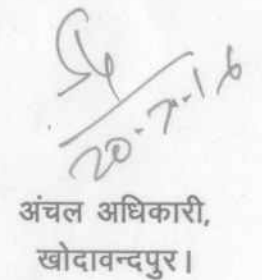 20-7-16
अंचल अधिकारी,
खोदावन्दपुर।